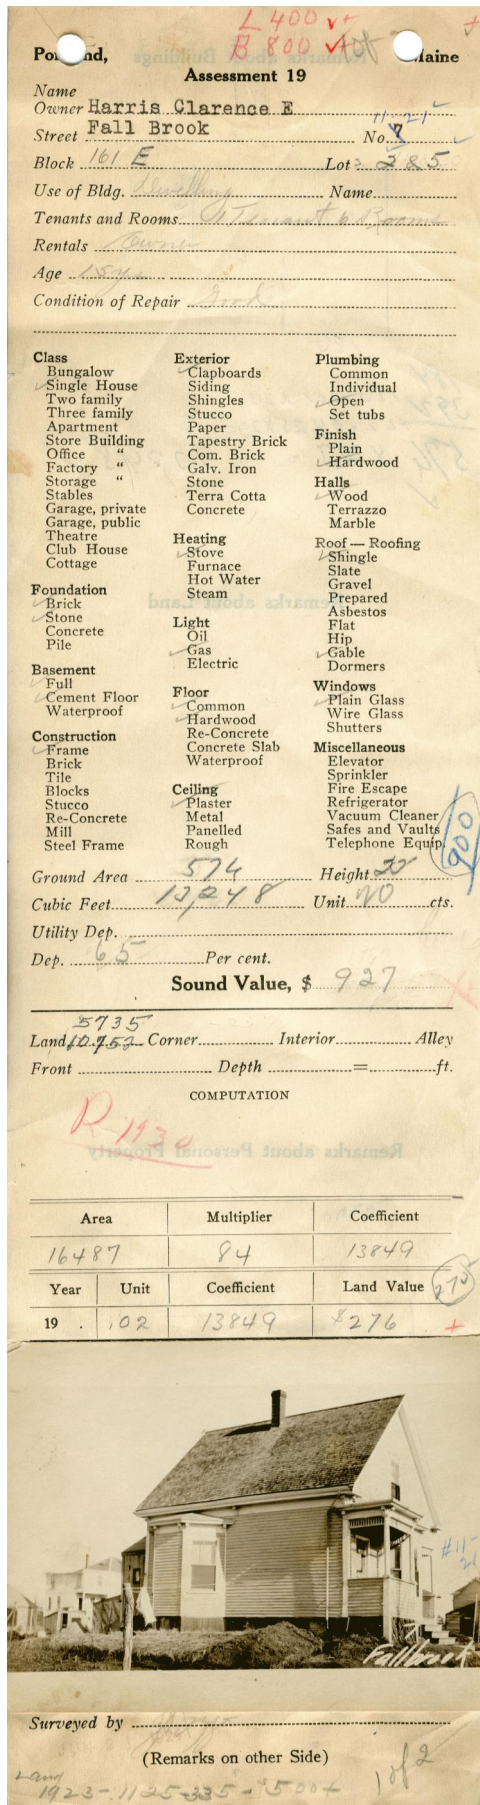 L 400
B 800
Portland, Maine
Assessment 19
Name
Owner Harris Clarence E
11-21
Street Fall Brook No. 7
Block 161 E Lot 3 285
Use of Bldg. Dwelling Name
Tenants and Rooms 1 Tenant 6 Rooms
Rentals Owner
Age 15 yrs
Condition of Repair Good
Class
Bungalow
Single House
Two family
Three family
Apartment
Store Building
Office "
Factory "
Storage "
Stables
Garage, private
Garage, public
Theatre
Club House
Cottage
Foundation
Brick
Stone
Concrete
Pile
Basement
Full
Cement Floor
Waterproof
Construction
Frame
Brick
Tile
Blocks
Stucco
Re-Concrete
Mill
Steel Frame
Exterior
Clapboards
Siding
Shingles
Stucco
Paper
Tapestry Brick
Com. Brick
Galv. Iron
Stone
Terra Cotta
Concrete
Heating
Stove
Furnace
Hot Water
Steam
Light
Oil
Gas
Electric
Floor
Common
Hardwood
Re-Concrete
Concrete Slab
Waterproof
Ceiling
Plaster
Metal
Panelled
Rough
Plumbing
Common
Individual
Open
Set tubs
Finish
Plain
Hardwood
Halls
Wood
Terrazzo
Marble
Roof — Roofing
Shingle
Slate
Gravel
Prepared
Asbestos
Flat
Hip
Gable
Dormers
Windows
Plain Glass
Wire Glass
Shutters
Miscellaneous
Elevator
Sprinkler
Fire Escape
Refrigerator
Vacuum Cleaner
Safes and Vaults
Telephone Equip.
900
Ground Area 574 Height
Cubic Feet Unit cts.
Utility Dep.
Dep. 65 Per cent.
Sound Value, $ 927
5735
Land 10752 Corner Interior Alley
Front Depth = ft.
COMPUTATION
R 1930
Area Multiplier Coefficient
16487 84 13849
Year Unit Coefficient Land Value
275
19 . .02 13849 $276
#11-21
Fallbrook
Surveyed by
(Remarks on other Side)
1 of 2
Land
1923-1125-335-$500+